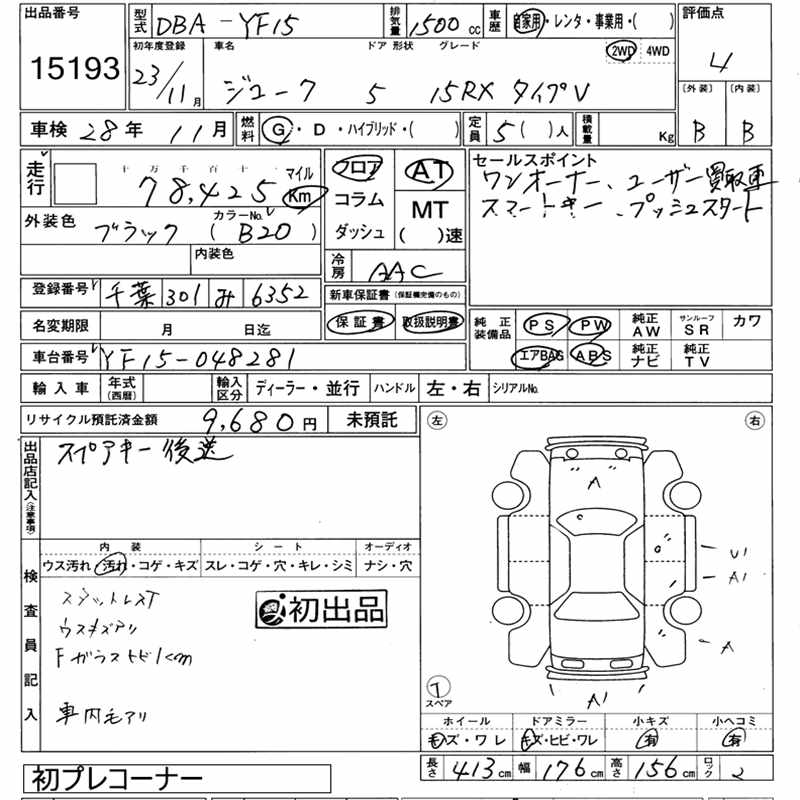 出品番号 15193
型式 DBA-YF15 排気量 1500 cc 車歴 自家用・レンタ・事業用・( )
評価点 4
初年度登録 23/11月 車名 ジューク ドア 形状 5 グレード 15RX タイプV 2WD 4WD
〔外装〕 B 〔内装〕 B
車検 28年 11月 燃料 G・D・ハイブリッド・( ) 定員 5( )人 積載量 Kg
走行 十万千百十一 78,425 マイル Km
フロア コラム ダッシュ
AT MT ( )速
セールスポイント
ワンオーナー、ユーザー買取車
スマートキー、プッシュスタート
外装色 ブラック カラーNo. (B20)
内装色
冷房 AAC
登録番号 千葉 301 み 6352
新車保証書 (保証継完備のもの)
保証書 取扱説明書
名変期限 月 日迄
純正装備品 PS PW 純正AW サンルーフSR カワ
エアBAG ABS 純正ナビ 純正TV
車台番号 YF15-048281
輸入車 年式(西暦) 輸入区分 ディーラー・並行 ハンドル 左・右 シリアルNo.
リサイクル預託済金額 9,680円 未預託
左 右
出品店記入(注意事項)
スペアキー後送
内装 シート オーディオ
ウス汚れ・汚れ・コゲ・キズ スレ・コゲ・穴・キレ・シミ ナシ・穴
検査員記入
ウスキズアリ
Fガラストビ1cm
車内毛アリ
初出品
A
U1
A1
A
A1
スペア
ホイール ドアミラー 小キズ 小ヘコミ
キズ・ワレ キズ・ヒビ・ワレ 有 有
初プレコーナー
長さ 413cm 幅 176cm 高さ 156cm ロック 2